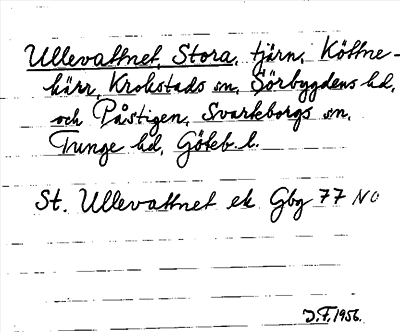 Ullevattnet, Stora, tjärn, Köttne-
kärr, Krokstads sn, Sörbygdens hd,
och Påstigen, Svarteborgs sn,
Tunge hd, Göteb. l.
St. Ullevattnet ek Gbg 77 NO
J.F. 1956.